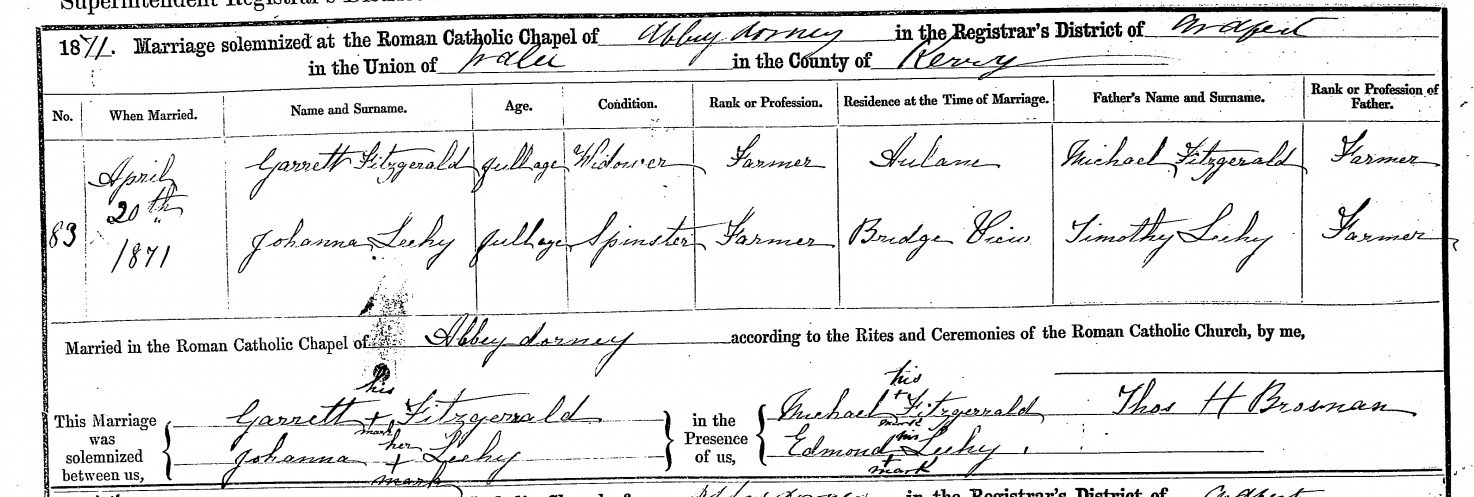 Superintendent Registrar's District
1871. Marriage solemnized at the Roman Catholic Chapel of Abbeydorney in the Registrar's District of Ardfert
in the Union of Tralee in the County of Kerry
No. When Married. Name and Surname. Age. Condition. Rank or Profession. Residence at the Time of Marriage. Father's Name and Surname. Rank or Profession of Father.
83 April 20th 1871
Garrett Fitzgerald full age Widower Farmer Aulane Michael Fitzgerald Farmer
Johanna Leehy full age Spinster Farmer Bridge View Timothy Leehy Farmer
Married in the Roman Catholic Chapel of Abbeydorney according to the Rites and Ceremonies of the Roman Catholic Church, by me,
This Marriage was solemnized between us,
Garrett his + mark Fitzgerrald
Johanna her + mark Leehy
in the Presence of us,
Michael his + mark Fitzgerrald
Edmond his + mark Leehy.
Thos H Brosnan
in the Registrar's District of